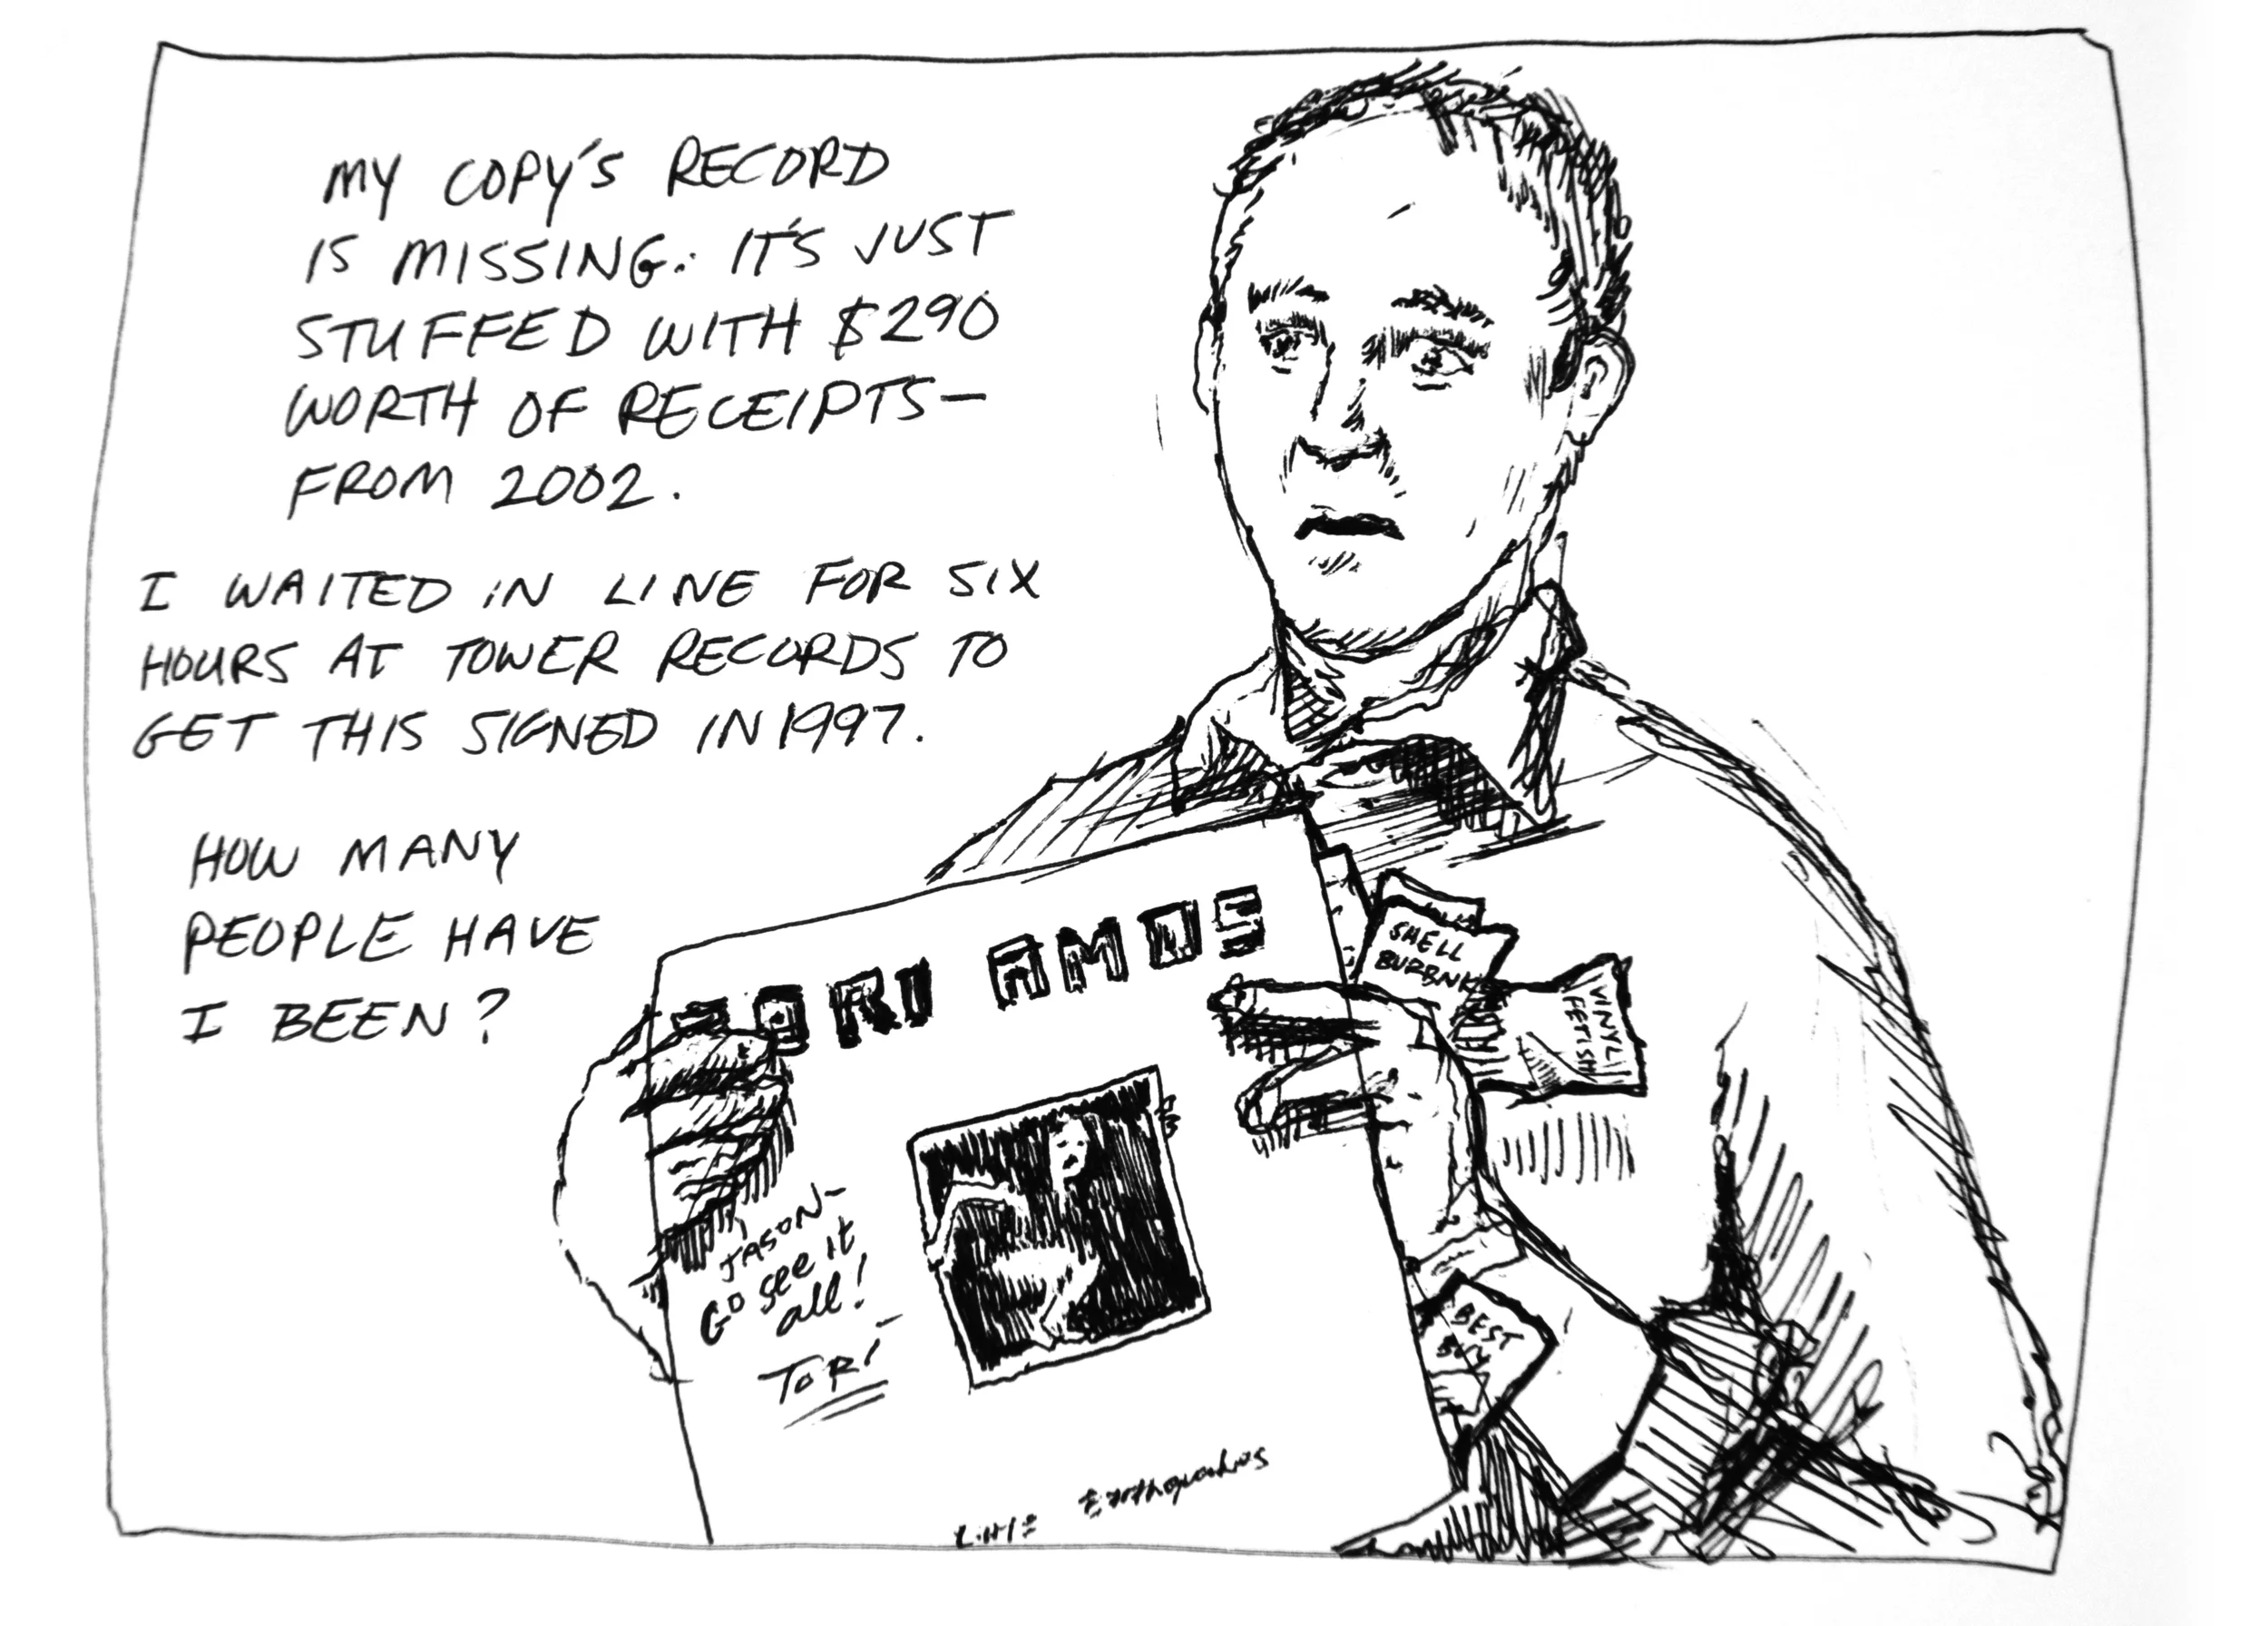 MY COPY'S RECORD
IS MISSING. IT'S JUST
STUFFED WITH $290
WORTH OF RECEIPTS—
FROM 2002.
I WAITED IN LINE FOR SIX
HOURS AT TOWER RECORDS TO
GET THIS SIGNED IN 1997.
HOW MANY
PEOPLE HAVE
I BEEN?
TORI AMOS
SHELL
BURBNK
VINYL
FETISH
JASON—
Go see it
all!
TORI
BEST
BUY
Little Earthquakes